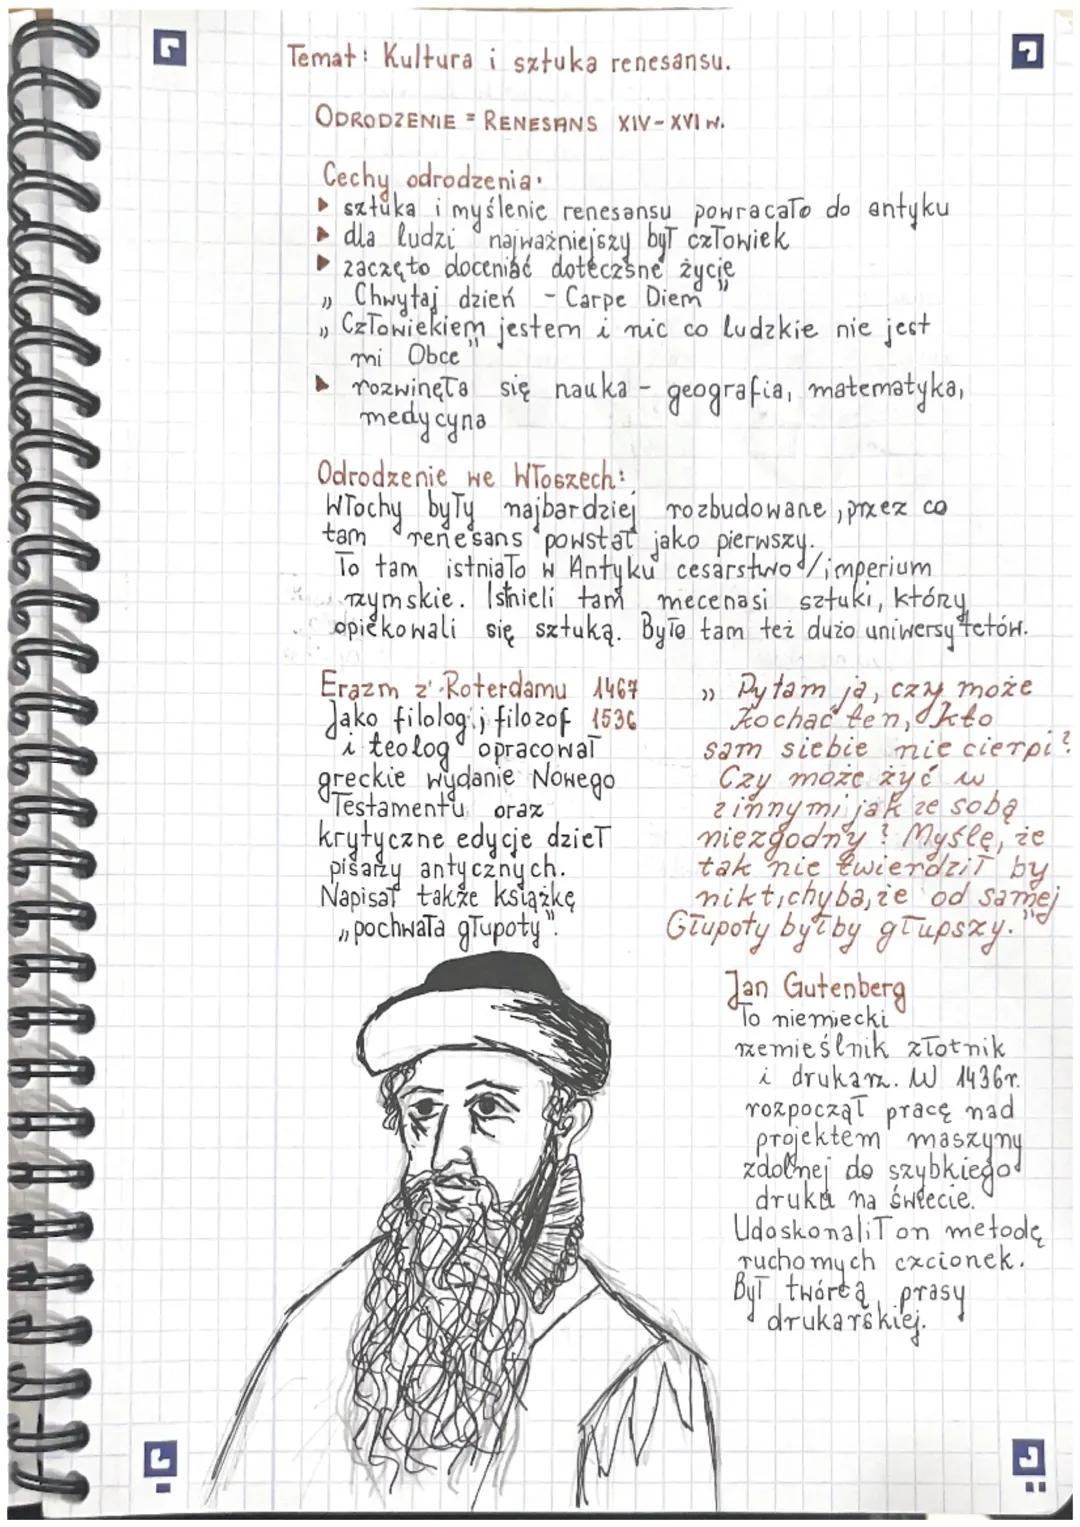 Temat: Kultura i sztuka renesansu.
ODRODZENIE = RENESANS XIV-XVI w.
Cechy odrodzenia:
▶ sztuka i myślenie renesansu powracało do antyku
▶ dla ludzi najważniejszy był człowiek
▶ zaczęto doceniać doteczsne życie
„ Chwytaj dzień - Carpe Diem "
„ Człowiekiem jestem i nic co ludzkie nie jest
mi Obce "
▶ rozwinęła się nauka - geografia, matematyka,
medycyna
Odrodzenie we Włoszech:
Włochy były najbardziej rozbudowane, przez co
tam renesans powstał jako pierwszy.
To tam istniało w Antyku cesarstwo/imperium
rzymskie. Istnieli tam mecenasi sztuki, którzy
opiekowali się sztuką. Było tam też dużo uniwersytetów.
Erazm z Roterdamu 1467
Jako filolog, filozof 1536
i teolog opracował
greckie wydanie Nowego
Testamentu oraz
krytyczne edycje dzieł
pisarzy antycznych.
Napisał także książkę
„pochwała głupoty".
„ Pytam ja, czy może
kochać ten, kto
sam siebie nie cierpi?
Czy może żyć w
z innymi jak ze sobą
niezgodny? Myślę, że
tak nie twierdził by
nikt, chyba, że od samej
Głupoty byłby głupszy."
Jan Gutenberg
To niemiecki
rzemieślnik złotnik
i drukarz. W 1436r.
rozpoczął pracę nad
projektem maszyny
zdolnej do szybkiego
druku na świecie.
Udoskonalił on metodę
ruchomych czcionek.
Był twórcą prasy
drukarskiej.